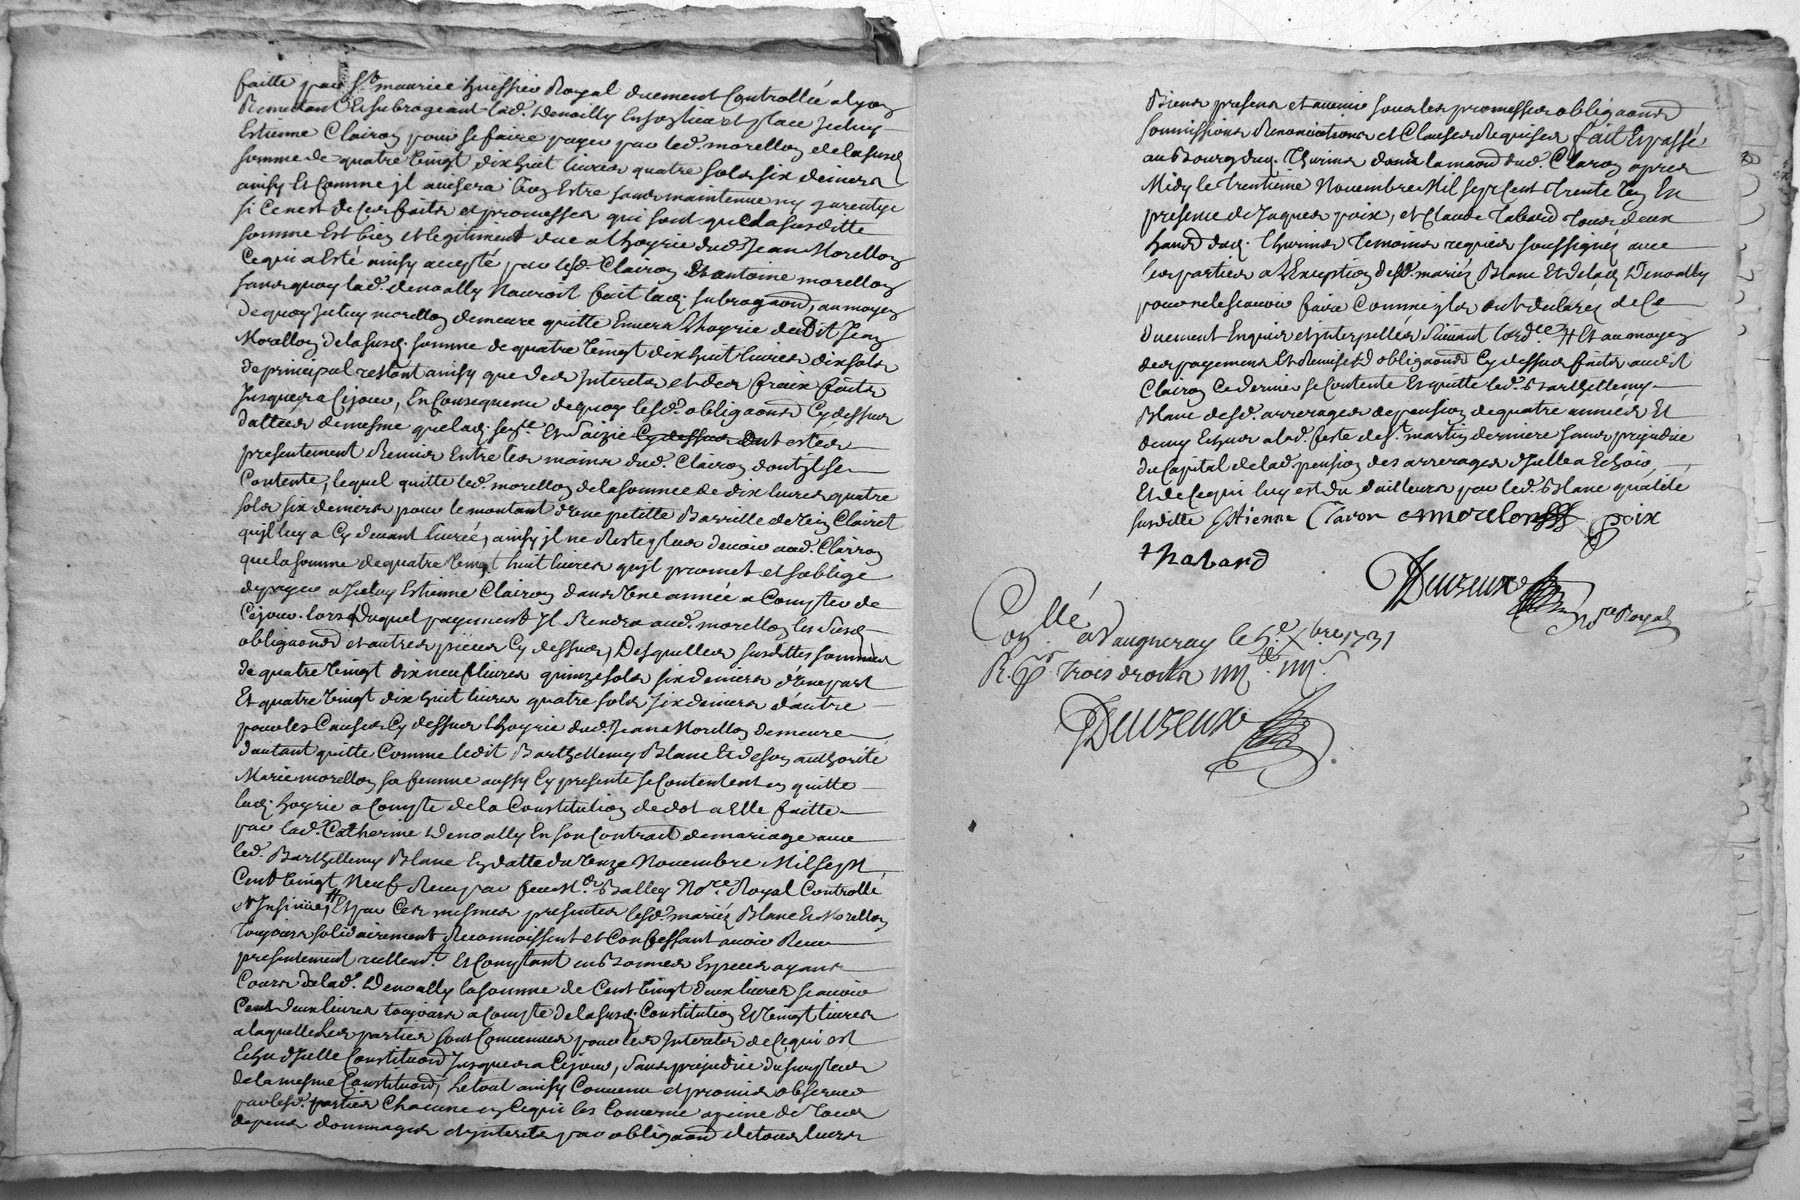 faitte par S.r maurice huissier Royal duement Controllée a lyon
Remettant et subrogeant lad. Denoally en son lieu et place jceluy
Estienne Clairon pour se faire payer par led. morellon de la susd.
somme de quatre vingt dix huit livres quatre sols six deniers
ainsy et comme jl avisera bon Estre sans maintenue ny garentye
si ce n'est de ses faits et promesses qui sont que la susditte
somme est bien et legitimem.t due a lhoyrie dud. Jean Morellon
Ce qui a esté ainsy accepté par lesd. Clairon et antoine morellon
sans quoy lad. denoally n'auroit fait lad. subrogaôn, au moyen
de quoy jceluy morellon demeure quitte Envers Lhoyrie dudit Jean
Morellon de la susd. somme de quatre vingt dix huit livres dix sols
de principal restant ainsy que des Interets et des fraix faits
Jusques a Ce jour, En Consequence de quoy lesd. obligaôns Cy dessus
dattées de mesme que lad. et Saizie Cy dessus ont estés
presentement Remis Entre les mains dud. Clairon dont jl se
Contente, lequel quitte led. morellon de la somme de dix livres quatre
sols six deniers pour le montant d'une petitte Barrille de vin Clairet
qu'jl luy a Cy devant livrée, ainsy jl ne Reste plus devoir aud. Clairon
que la somme de quatre vingt huit livres qu'jl promet et s'oblige
de payer a jceluy Estienne Clairon dans une année a Compter de
Ce jour lors duquel payement jl Rendra aud. morellon les susd.
obligaôns et autres pieces Cy dessus, Desquelles susdittes sommes
de quatre vingt dix neuf livres quinze sols six deniers d'une part
Et quatre vingt dix huit livres quatre sols six deniers d'autre
pour les Causes Cy dessus lhoyrie dud. Jean Morellon demeure
d'autant quitte Comme ledit Barthellemy Blanc Et de son authorité
Marie morellon sa femme aussy Cy presente se Contentent en quitte
lad. hoyrie a Compte de la Constitution de dot a Elle faitte
par lad. Catherine Denoally En son Contrat de mariage avec
led. Barthellemy Blanc En datte du onze Novembre Mil sept
Cent vingt Neuf Receu par feu M.e Balley No.re Royal Controllé
et Insinüé, Et par Ces mesmes presentes lesd. mariéz Blanc Et Morellon
toujours solidairement Reconnoissent et Confessent avoir Receu
presentement reellem.t Et Comptant en bonnes Especes ayans
Cours de lad. Denoally la somme de Cent vingt deux livres sçavoir
Cent deux livres toujours a Compte de la susd. Constitution Et vingt livres
a laquelle les parties sont Convenües pour les Interets de Ce qui est
Echu d'jcelle Constituaôn Jusques a Ce jour, sans prejudice du surplus
de la mesme Constituaôn, Le tout ainsy Convenu et promis observer
par lesd. parties Chacune en Ce qui les Concerne a peine de tous
depens dommages et interets par obligaôn de tous leurs
Biens presens et avenir sous les promesses obligaôns
soumissions Renonciations et Clauses Requises fait Et passé
au Bourg dud. Thurins dans la maison dud. Claron apres
Midy le trentieme Novembre Mil sept Cent trente Un En
presence de Jaques poix, et Claude Tabard tous deux
hans dud. thurins temoins requis soussignéz avec
les parties a L'Exception desd. mariéz Blanc Et de lad. Denoally
pour ne le sçavoir faire Comme jls ont declaréz de Ce
duement Enquis et interpellés suivant l'ord.ce # Et au moyen
des payemens Et Remises d'obligaôns Cy dessus faits audit
Clairon Ce dernier se Contente Et quitte led. Barthellemy
Blanc desd. arrerages de pension de quatre années Et
demy Echues a lad. feste de S.t martin derniere sans prejudice
du Capital de lad. pension des arrerages d'jcelle a Echoir
Et de Ce qui luy est du d'ailleurs par led. Blanc qualité
susditte Estienne Claron Amorelon poix
thabard
Deuzeux No.re Royal
Con.llé a Vaugneray le 5.e Xbre 1731
R. p.r trois droits
Deuzeux